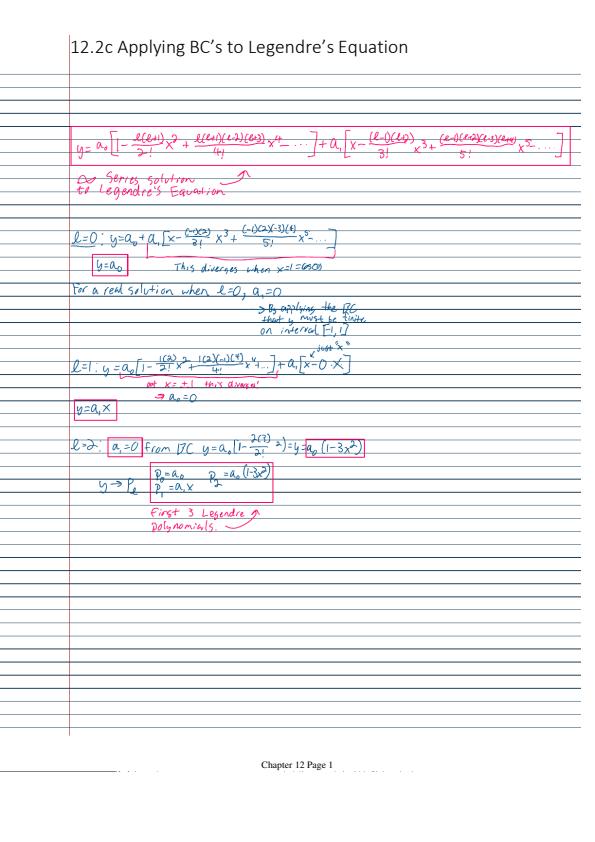 12.2c Applying BC's to Legendre's Equation
y = a₀[1 - l(l+1)/2! x² + l(l+1)(l-2)(l+3)/4! x⁴ - ...] + a₁[x - (l-1)(l+2)/3! x³ + (l-1)(l+2)(l-3)(l+4)/5! x⁵ - ...]
∞ Series solution
to Legendre's Equation
l=0: y = a₀ + a₁[x - (-1)(2)/3! x³ + (-1)(2)(-3)(4)/5! x⁵ - ...]
y = a₀
This diverges when x=1=
For a real solution when l=0, a₁=0
> By applying the BC
that y must be finite
on interval [-1, 1]
just "x"
l=1: y = a₀[1 - 1(2)/2! x² + 1(2)(-1)(4)/4! x⁴ - ...] + a₁[x - 0·x]
at x = ±1 this diverges!
→ a₀=0
y = a₁x
l=2: a₁=0 from BC y = a₀(1 - 2(3)/2! ²) = y = a₀(1-3x²)
y → Pₗ
P₀ = a₀ P₂ = a₀(1-3x²)
P₁ = a₁x
First 3 Legendre
Polynomials.
Chapter 12 Page 1